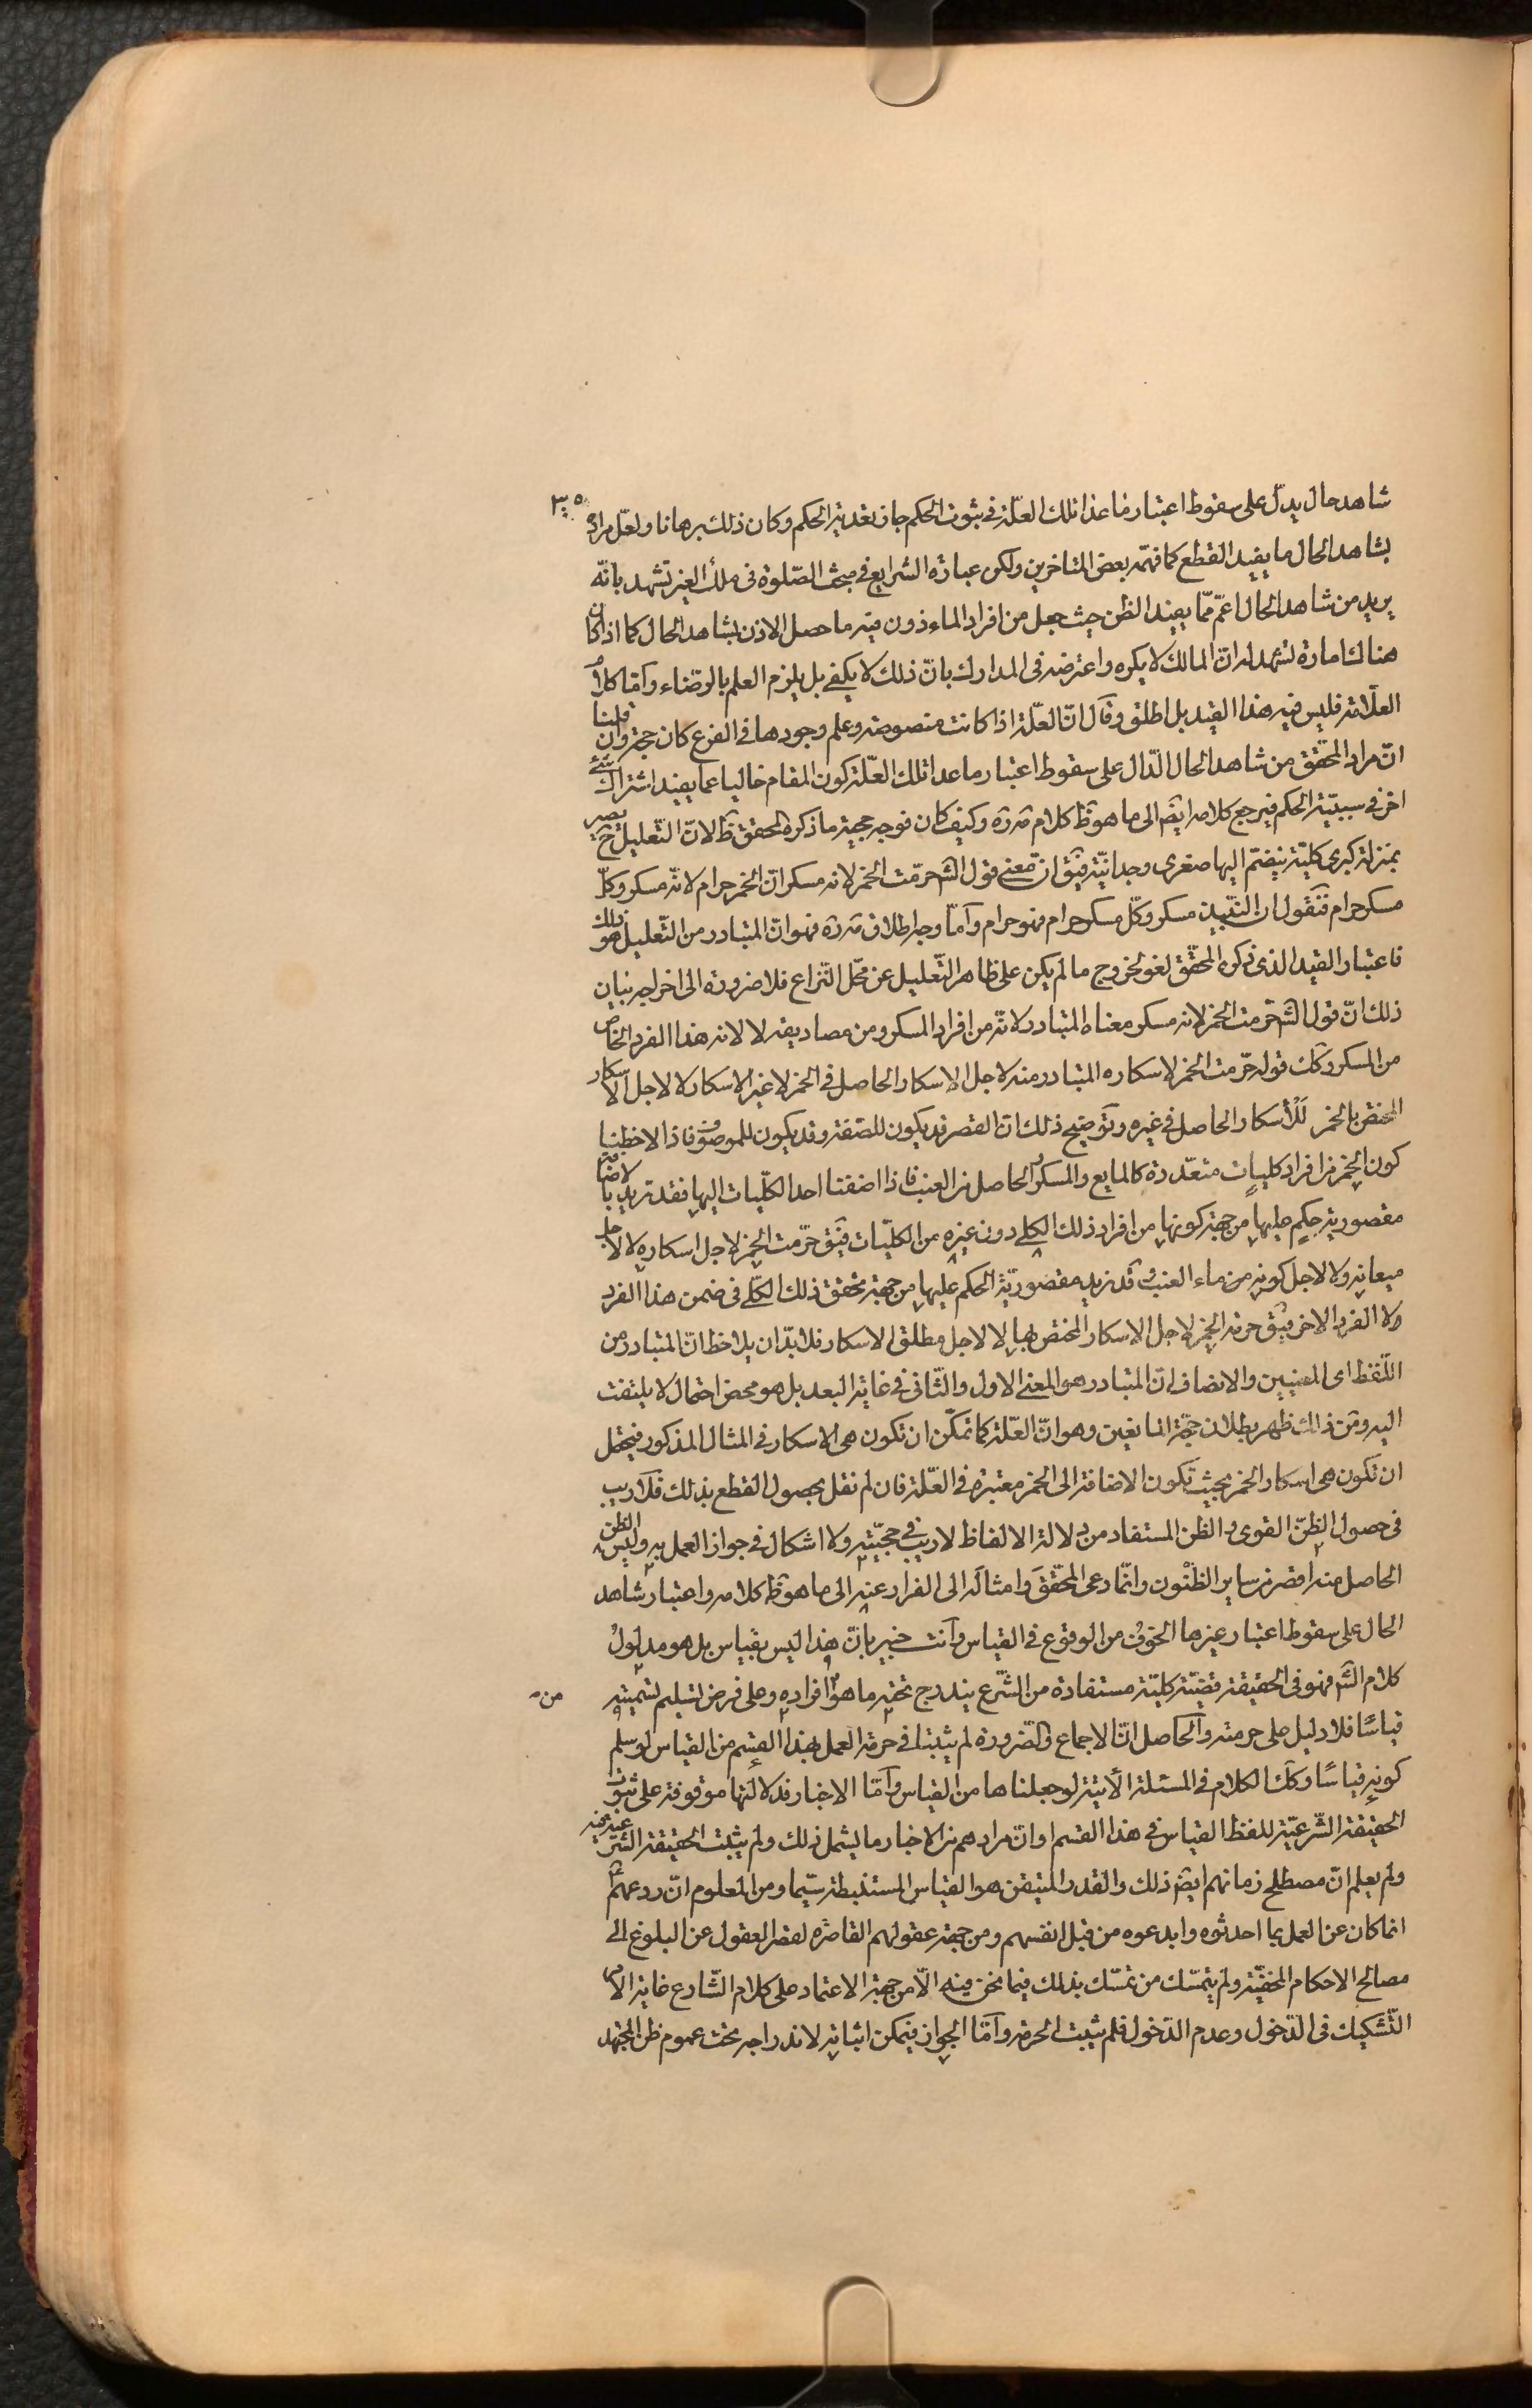 ٣٠٥
شاهد حال يدلّ على سقوط اعتبار ما عدا تلك العلّة فى ثبوت الحكم جاز تعدية الحكم وكان ذلك برهانا ولعلّ مراده
بشاهد الحال ما يفيد القطع كما فهمه بعض المتاخرين ولكن عبارة الشرايع فى مبحث الصّلوة فى ملك الغير تشهد بانّه
يريد من شاهد الحال اعمّ ممّا يفيد الظن حيث جعل من افراد الماءذون فيه ما حصل الاذن بشاهد الحال كما اذا كان
هناك امارة تشهد ان المالك لا يكره واعترضه فى المدارك بانّ ذلك لا يكفى بل يلزم العلم بالرّضاء وامّا كلام
العلّامة فليس فيه هذا القيد بل اطلق وقال انّ العلّة اذا كانت منصوصة وعلم وجودها فى الفرع كان حجة وان قلنا
انّ مراد المحقّق من شاهد الحال الدّال على سقوط اعتبار ما عدا تلك العلّة كون المقام خاليا عما يفيد اشتراك شئ
اخر فى سببيّة الحكم فيرجع كلامه ايضا الى ما هو ظ كلام مرّة وكيف كان فوجه حجية ما ذكره المحقق ظ لانّ التّعليل ح يصير
بمنزلة كبرى كليّة ينضمّ اليها صغرى وجدانيّة فيق انّ معنى قول الش حرّمت الخمر لانه مسكر انّ الخمر حرام لانّه مسكر وكلّ
مسكر حرام فنقول ان النّبيذ مسكر وكلّ مسكر حرام فهو حرام وامّا وجه اطلاق مرّة فهو انّ المتبادر من التّعليل هو ذلك
فاعتبار القيد الذى ذكره المحقّق لغو لخروج ما لم يكن على ظاهر التّعليل عن محّل النّزاع فلا ضرورة الى اخراجه بيان
ذلك انّ قول الش حرّمت الخمر لانه مسكر معناه المتبادر لانّه من افراد المسكر ومن مصاديقه لا لانه هذا الفرد الخاص
من المسكر وكك قوله حرّمت الخمر لاسكاره المتبادر منه لاجل الاسكار الحاصل فى الخمر لا غير الاسكار لا لاجل الاسكار
المختصّ بالخمر لا للأسكار الحاصل فى غيره وتوضيح ذلك انّ القصر قد يكون للصّفة وقد يكون للموصوف فاذا لاحظنا
كون الخمر من افراد كليات متعدّدة كالمايع والمسكر والحاصل من العنب فاذا اضفنا احد الكلّيات اليها فقد تريد بالاضافة
مقصورية حكم عليها من جهة كونها من افراد ذلك الكلى دون غيره من الكلّيات فيق حرّمت الخمر لاجل اسكاره لا لاجل
ميعانه ولا لاجل كونه من ماء العنب وقد نريد مقصوريّة الحكم عليها من جهة تحقق ذلك الكلّى فى ضمن هذا الفرد
لا الفرد الاخر فيق حرمة الخمر لاجل الاسكار المختص بها لا لاجل مطلق الاسكار فلابدّ ان يلاحظ انّ المتبادر من
اللّفظ اى المعنيين والانصاف انّ المتبادر هو المعنى الاول والثّانى فى غاية البعد بل هو محض احتمال لا يلتفت
اليه ومن ذلك ظهر بطلان حجّة المانعين وهو انّ العلّة كما تمكّن ان تكون هى الاسكار فى المثال المذكور فيحتمل
ان تكون هى اسكار الخمر بحيث تكون الاضافة الى الخمر معتبرة فى العّلة فان لم نقل بحصول القطع بذلك فلا ريب
فى حصول الظنّ القوى والظن المستفاد من دلالة الالفاظ لا ريب فى حجّيّته ولا اشكال فى جواز العمل به وليس الظن
الحاصل منه اقصر من ساير الظنّون وانّما دعى المحقّق وامثاله الى الفرار عنه الى ما هو ظ كلامه واعتبار شاهد
الحال على سقوط اعتبار غيرها الخوف من الوقوع فى القياس وانت خبير بانّ هذا ليس بقياس بل هو مدلول
كلام الش فهو فى الحقيقة قضيّة كليّة مستفادة من الشّرع يندرج تحته ما هو من افراده وعلى فرض تسليم تسميته
قياسًا فلا دليل على حرمته والحاصل انّ الاجماع والضّرورة لم يثبتا فى حرمة العمل بهذا القسم من القياس لو سلم
كونه قياسًا وكك الكلام فى المسئلة الآتية لو جعلناها من القياس وامّا الاخبار فدلالتها موقوفة على ثبوت
الحقيقة الشّرعيّة للفظ القياس فى هذا القسم او انّ مرادهم من الاخبار ما يشمل ذلك ولم يثبت الحقيقة الشرعية فيه
ولم يعلم انّ مصطلح زمانهم ايضا ذلك والقدر المتيقن هو القياس المستنبطة سيّما ومن المعلوم انّ ردعهم
انما كان عن العمل بما احدثوه وابدعوه من قبل انفسهم ومن جهة عقولهم القاصرة لقصر العقول عن البلوغ الى
مصالح الاحكام الخفيّة ولم يتمسّك من تمسّك بذلك فيما نحن فيه الّا من جهة الاعتماد على كلام الشّارع غاية الامر
التّشكيك فى الدّخول وعدم الدّخول فلم يثبت الحرمة وامّا الجواز فيمكن اثباته لاندراجه تحت عموم ظن المجتهد